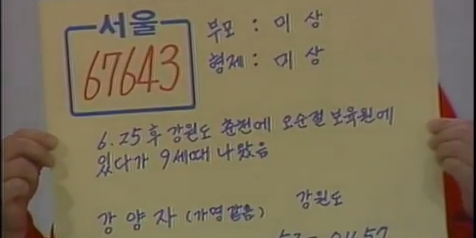 서울
67643
부모 : 미상
형제 : 미상
6.25 후 강원도 춘천에 오순절 보육원에
있다가 9세때 나왔음
강양자 (가명같음) 강원도